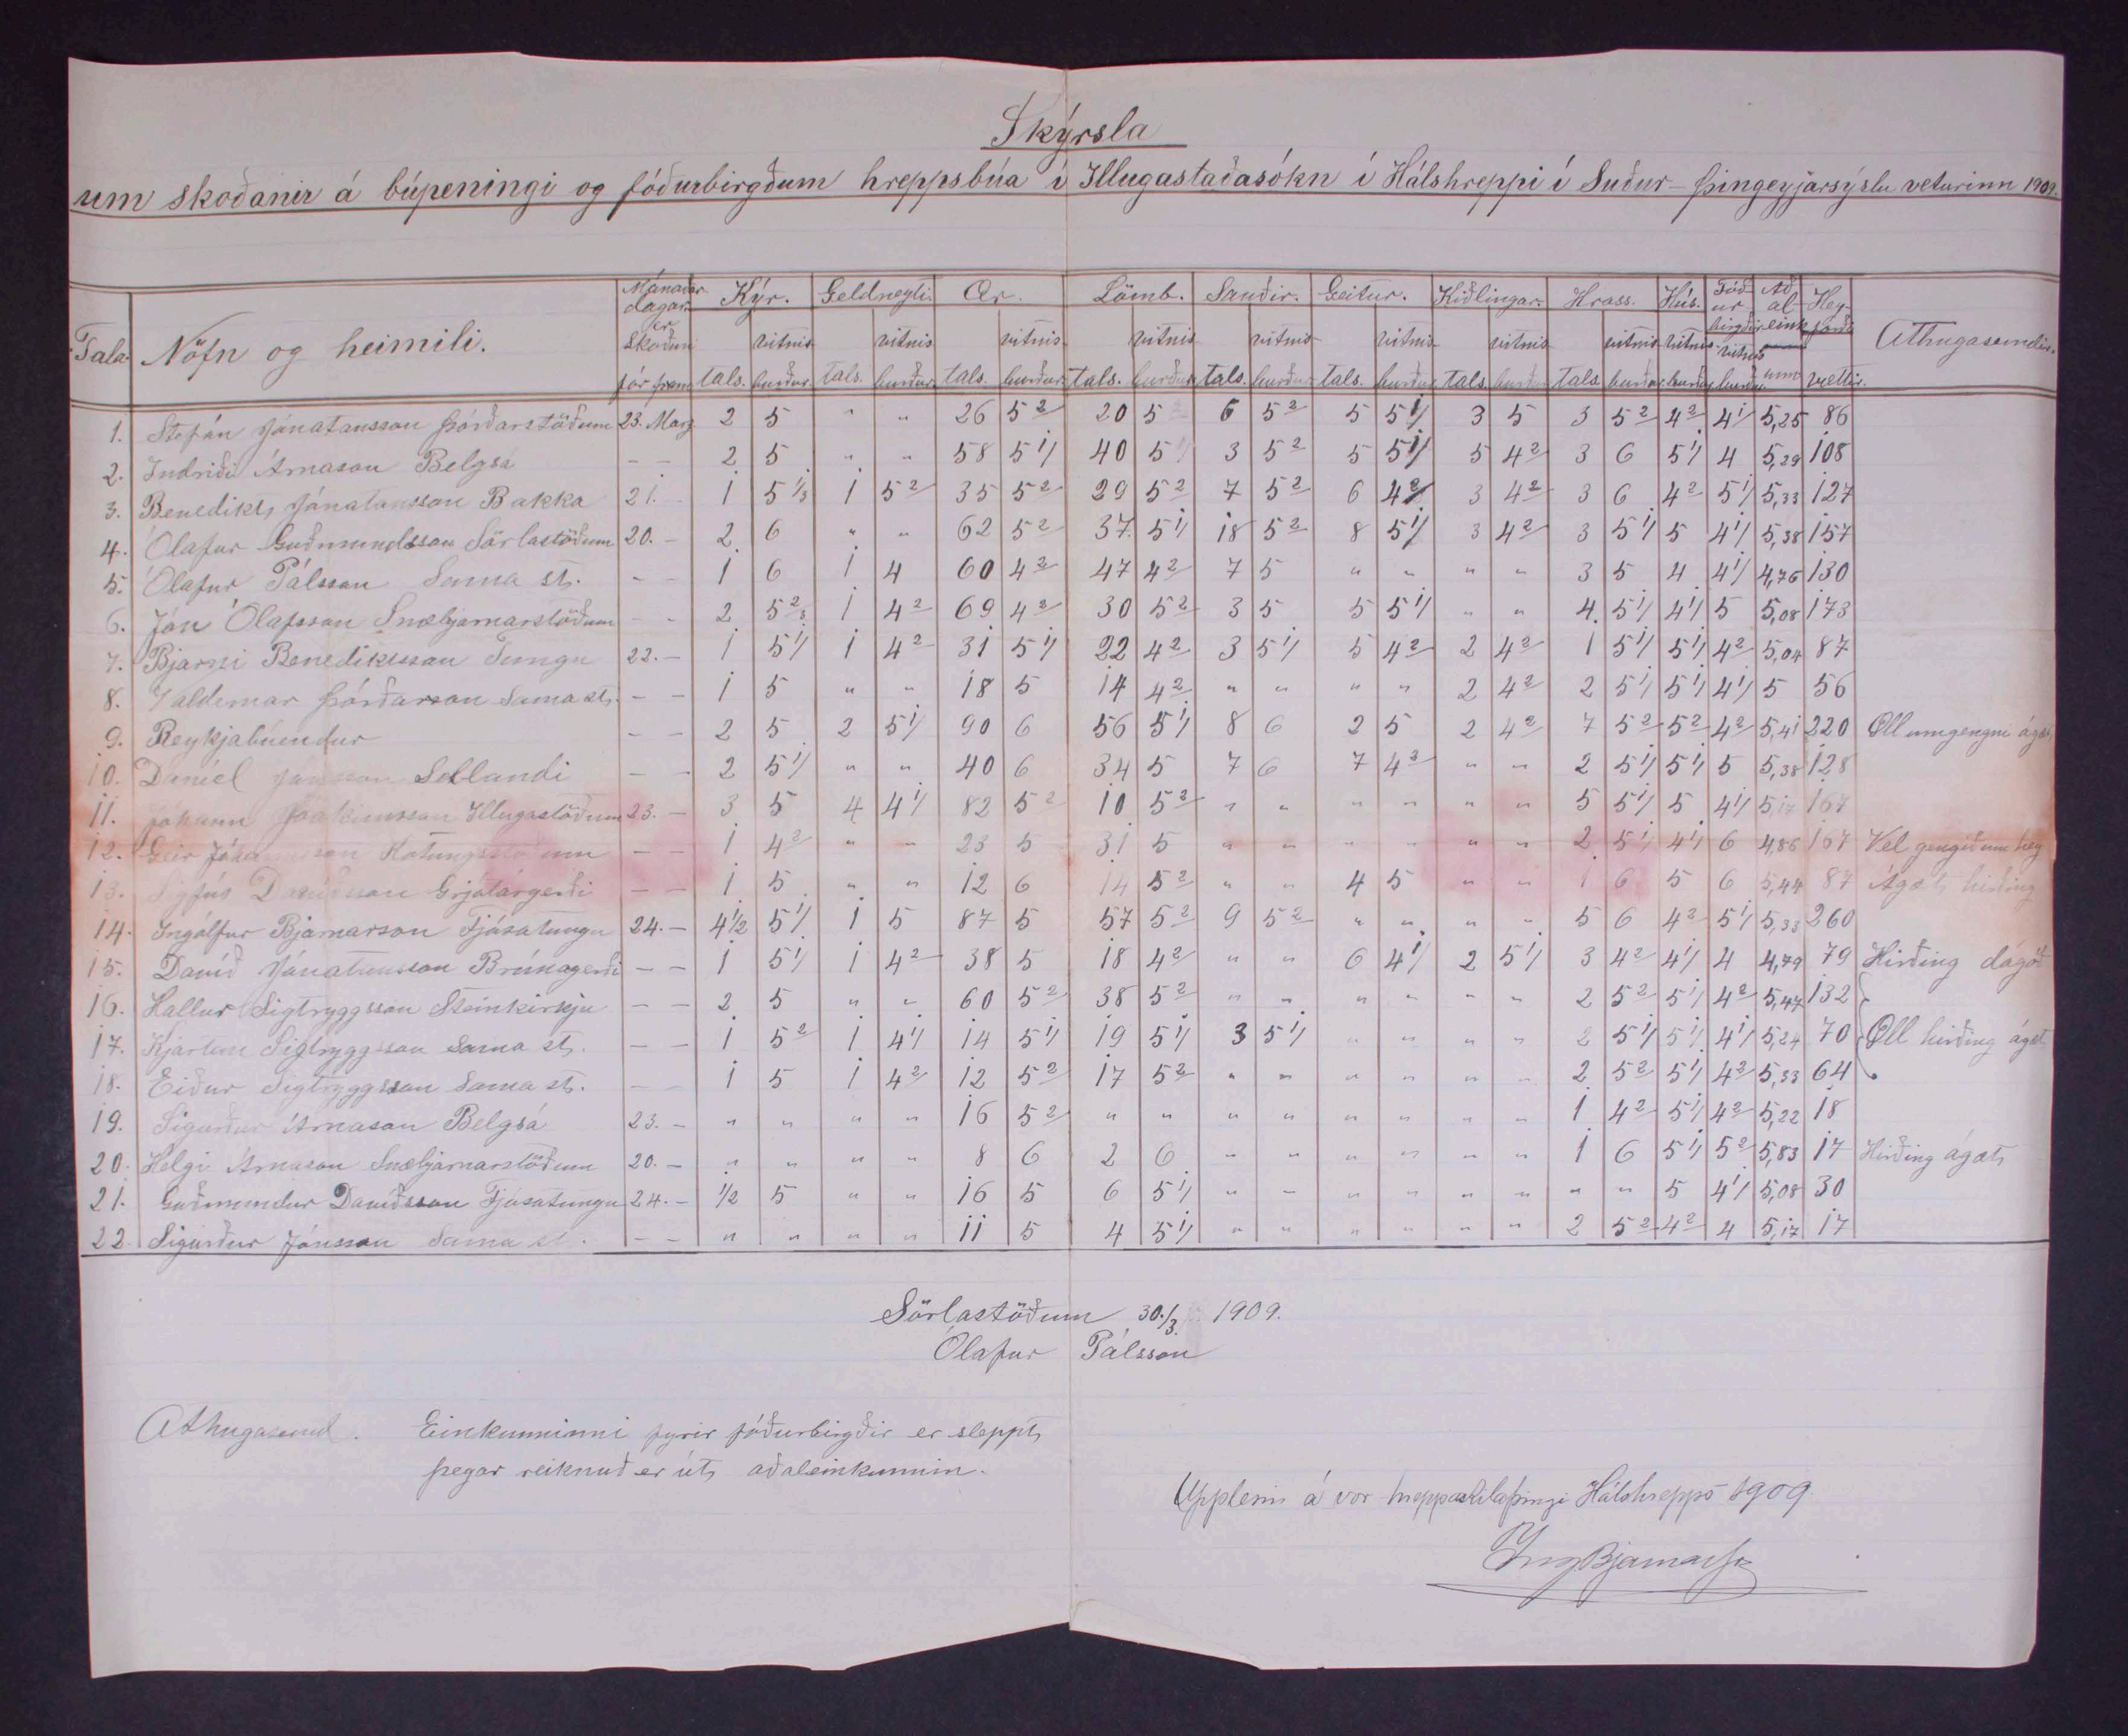 Skýrsla
um skoðanir á búpeningi og fóðurbirgðum hreppsbúa í Illugastaðasókn í Hálshreppi í Suður-Þingeyjarsýslu veturinn 1909.
Tala. Nöfn og heimili. Mánaðar dagar er skoðun fór fram Kýr. Geldneyti. Ær. Lömb. Sauðir. Geitur. Kiðlingar. Hross. Hús. Fóður birgðir Aðal eink unn Hey forði Athugasemdir.
vitnis vitnis vitnis vitnis vitnis vitnis vitnis vitnis vitnis vitnis
tals. burður tals. burður tals. burður tals. burður tals. burður tals. burður tals. burður tals. burður burður burður vættir.
1. Stefán Jónatansson Þórðarstöðum 23. Marz 2 5 " " 26 5 2/ 20 5 6 5 2/ 5 5 1/ 3 5 3 5 2/ 4 2/ 4 1/ 5,25 86
2. Indriði Árnason Belgsá - - 2 5 " " 58 5 1/ 40 5 1/ 3 5 2/ 5 5 1/ 5 4 2/ 3 6 5 1/ 4 5,29 108
3. Benedikt Jónatansson Bakka 21. - 1 5 1/3 1 5 2/ 35 5 2/ 29 5 2/ 7 5 2/ 6 4 2/ 3 4 2/ 3 6 4 2/ 5 1/ 5,33 127
4. Ólafur Guðmundsson Sörlastöðum 20. - 2 6 " " 62 5 2/ 37 5 1/ 18 5 2/ 8 5 1/ 3 4 2/ 3 5 1/ 5 4 1/ 5,38 157
5. Ólafur Pálsson Sama st. - - 1 6 1 4 60 4 2/ 47 4 2/ 7 5 " " " " 3 5 4 4 1/ 4,76 130
6. Jón Ólafsson Snæbjarnarstöðum - - 2 5 2/3 1 4 2/ 69 4 2/ 30 5 2/ 3 5 5 5 1/ " " 4 5 1/ 4 1/ 5 5,08 173
7. Bjarni Benediktsson Tungu 22. - 1 5 1/ 1 4 2/ 31 5 1/ 22 4 2/ 3 5 1/ 5 4 2/ 2 4 2/ 1 5 1/ 5 1/ 4 2/ 5,04 87
8. Valdemar Þórðarson Sama st. - - 1 5 " " 18 5 14 4 2/ " " " " 2 4 2/ 2 5 1/ 5 1/ 4 1/ 5 56
9. Reykjabúendur - - 2 5 2 5 1/ 90 6 56 5 1/ 8 6 2 5 2 4 2/ 7 5 2/ 5 2/ 4 2/ 5,41 220 Öll umgengni ágæt
10. Daníel Jónsson Sellandi - - 2 5 1/ " " 40 6 34 5 7 6 7 4 2/ " " 2 5 1/ 5 1/ 5 5,38 128
11. Jóhann Illugastöðum 23. - 3 5 4 4 1/ 82 5 2/ 10 5 2/ " " " " " " 5 5 1/ 5 4 1/ 5,17 167
12. Geir Kotungsstöðum - - 1 4 2/ " " 23 5 31 5 " " " " " " 2 5 1/ 4 1/ 6 4,86 167 Vel gengið um hey
13. Sigfús Davíðsson Grjótárgerði - - 1 5 " " 12 6 14 5 2/ " " 4 5 " " 1 6 5 6 5,44 87 Ágæt hirðing
14. Ingólfur Bjarnarson Fjósatungu 24. - 4 1/2 5 1/ 1 5 87 5 57 5 2/ 9 5 2/ " " " " 5 6 4 2/ 5 1/ 5,33 260
15. Davíð Jónatansson Brúnagerði - - 1 5 1/ 1 4 2/ 38 5 18 4 2/ " " 6 4 1/ 2 5 1/ 3 4 2/ 4 1/ 4 4,79 79 Hirðing dágóð
16. Hallur Sigtryggsson Steinkirkju - - 2 5 " " 60 5 2/ 38 5 2/ " " " " " " 2 5 2/ 5 1/ 4 2/ 5,47 132
17. Kjartan Sigtryggsson Sama st. - - 1 5 2/ 1 4 1/ 14 5 1/ 19 5 1/ 3 5 1/ " " " " 2 5 1/ 5 1/ 4 1/ 5,24 70 Öll hirðing ágæt
18. Eiður Sigtryggsson Sama st. - - 1 5 1 4 2/ 12 5 2/ 17 5 2/ " " " " " " 2 5 2/ 5 1/ 4 2/ 5,33 64
19. Sigurður Árnason Belgsá 23. - " " " " 16 5 2/ " " " " " " " " 1 4 2/ 5 1/ 4 2/ 5,22 18
20. Helgi Árnason Snæbjarnarstöðum 20. - " " " " 8 6 2 6 " " " " " " 1 6 5 1/ 5 2/ 5,83 17 Hirðing ágæt
21. Guðmundur Davíðsson Fjósatungu 24. - 1/2 5 " " 16 5 6 5 1/ " " " " " " " " 5 4 1/ 5,08 30
22. Sigurður Jónsson Sama st. - - " " " " 11 5 4 5 1/ " " " " " " 2 5 2/ 4 2/ 4 5,17 17
Sörlastöðum 30./3. 1909.
Ólafur Pálsson
Athugasemd. Einkunninni fyrir fóðurbirgðir er sleppt,
þegar reiknuð er út aðaleinkunnin.
Upplesin á vor hreppaskilaþingi Hálshrepps 1909
Ing Bjarnarson